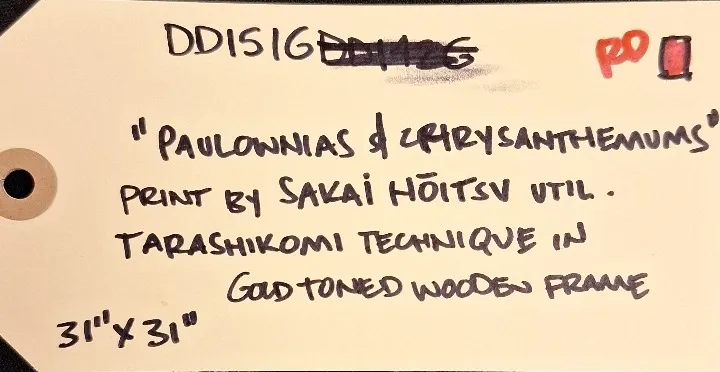 DD1516 RD
"PAULOWNIAS & CHRYSANTHEMUMS"
PRINT BY SAKAI HŌITSU UTIL.
TARASHIKOMI TECHNIQUE IN
GOLD TONED WOODEN FRAME
31" X 31"